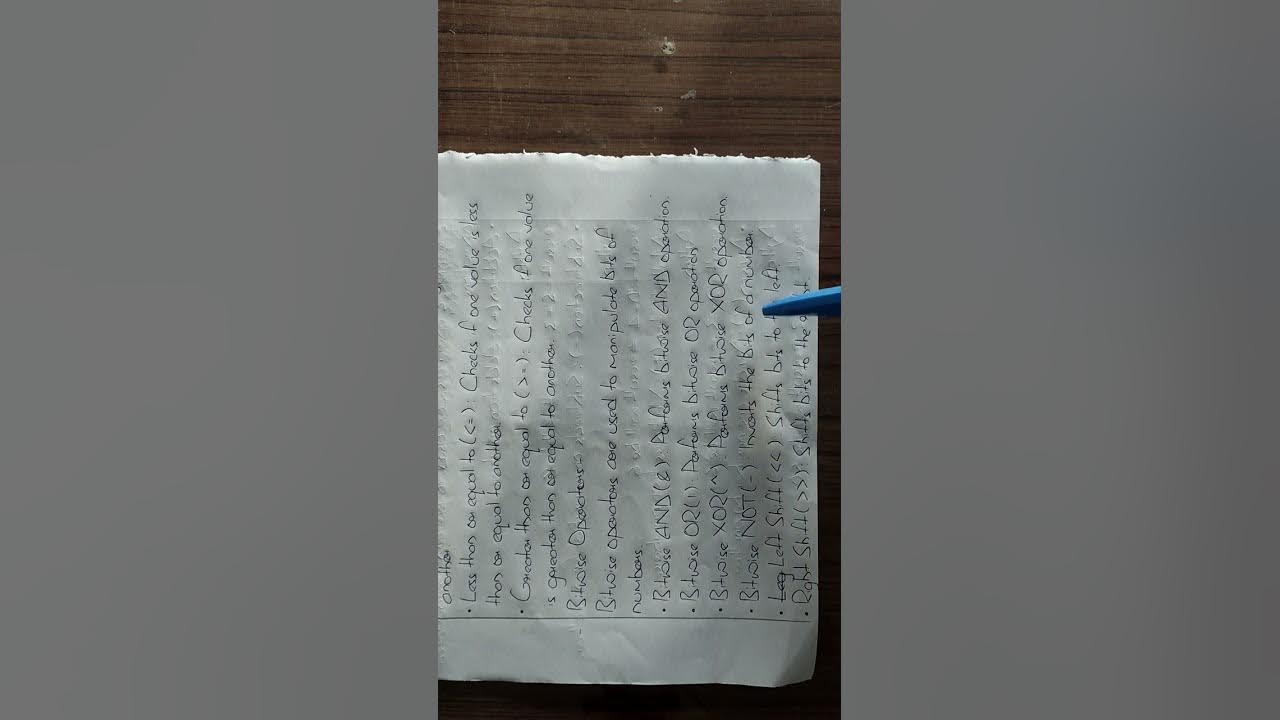 another.
• Less than or equal to (<=): Checks if one value is less
than or equal to another.
• Greater than or equal to (>=): Checks if one value
is greater than or equal to another.
- Bitwise Operators:-
Bitwise operators are used to manipulate bits of
numbers.
• Bitwise AND(&): Performs bitwise AND operation.
• Bitwise OR(|): Performs bitwise OR operation
• Bitwise XOR(^): Performs bitwise XOR operation.
• Bitwise NOT(~): Inverts the bits of a number.
• Left Shift(<<) Shifts bits to left.
• Right Shift(>>): Shifts bits to the